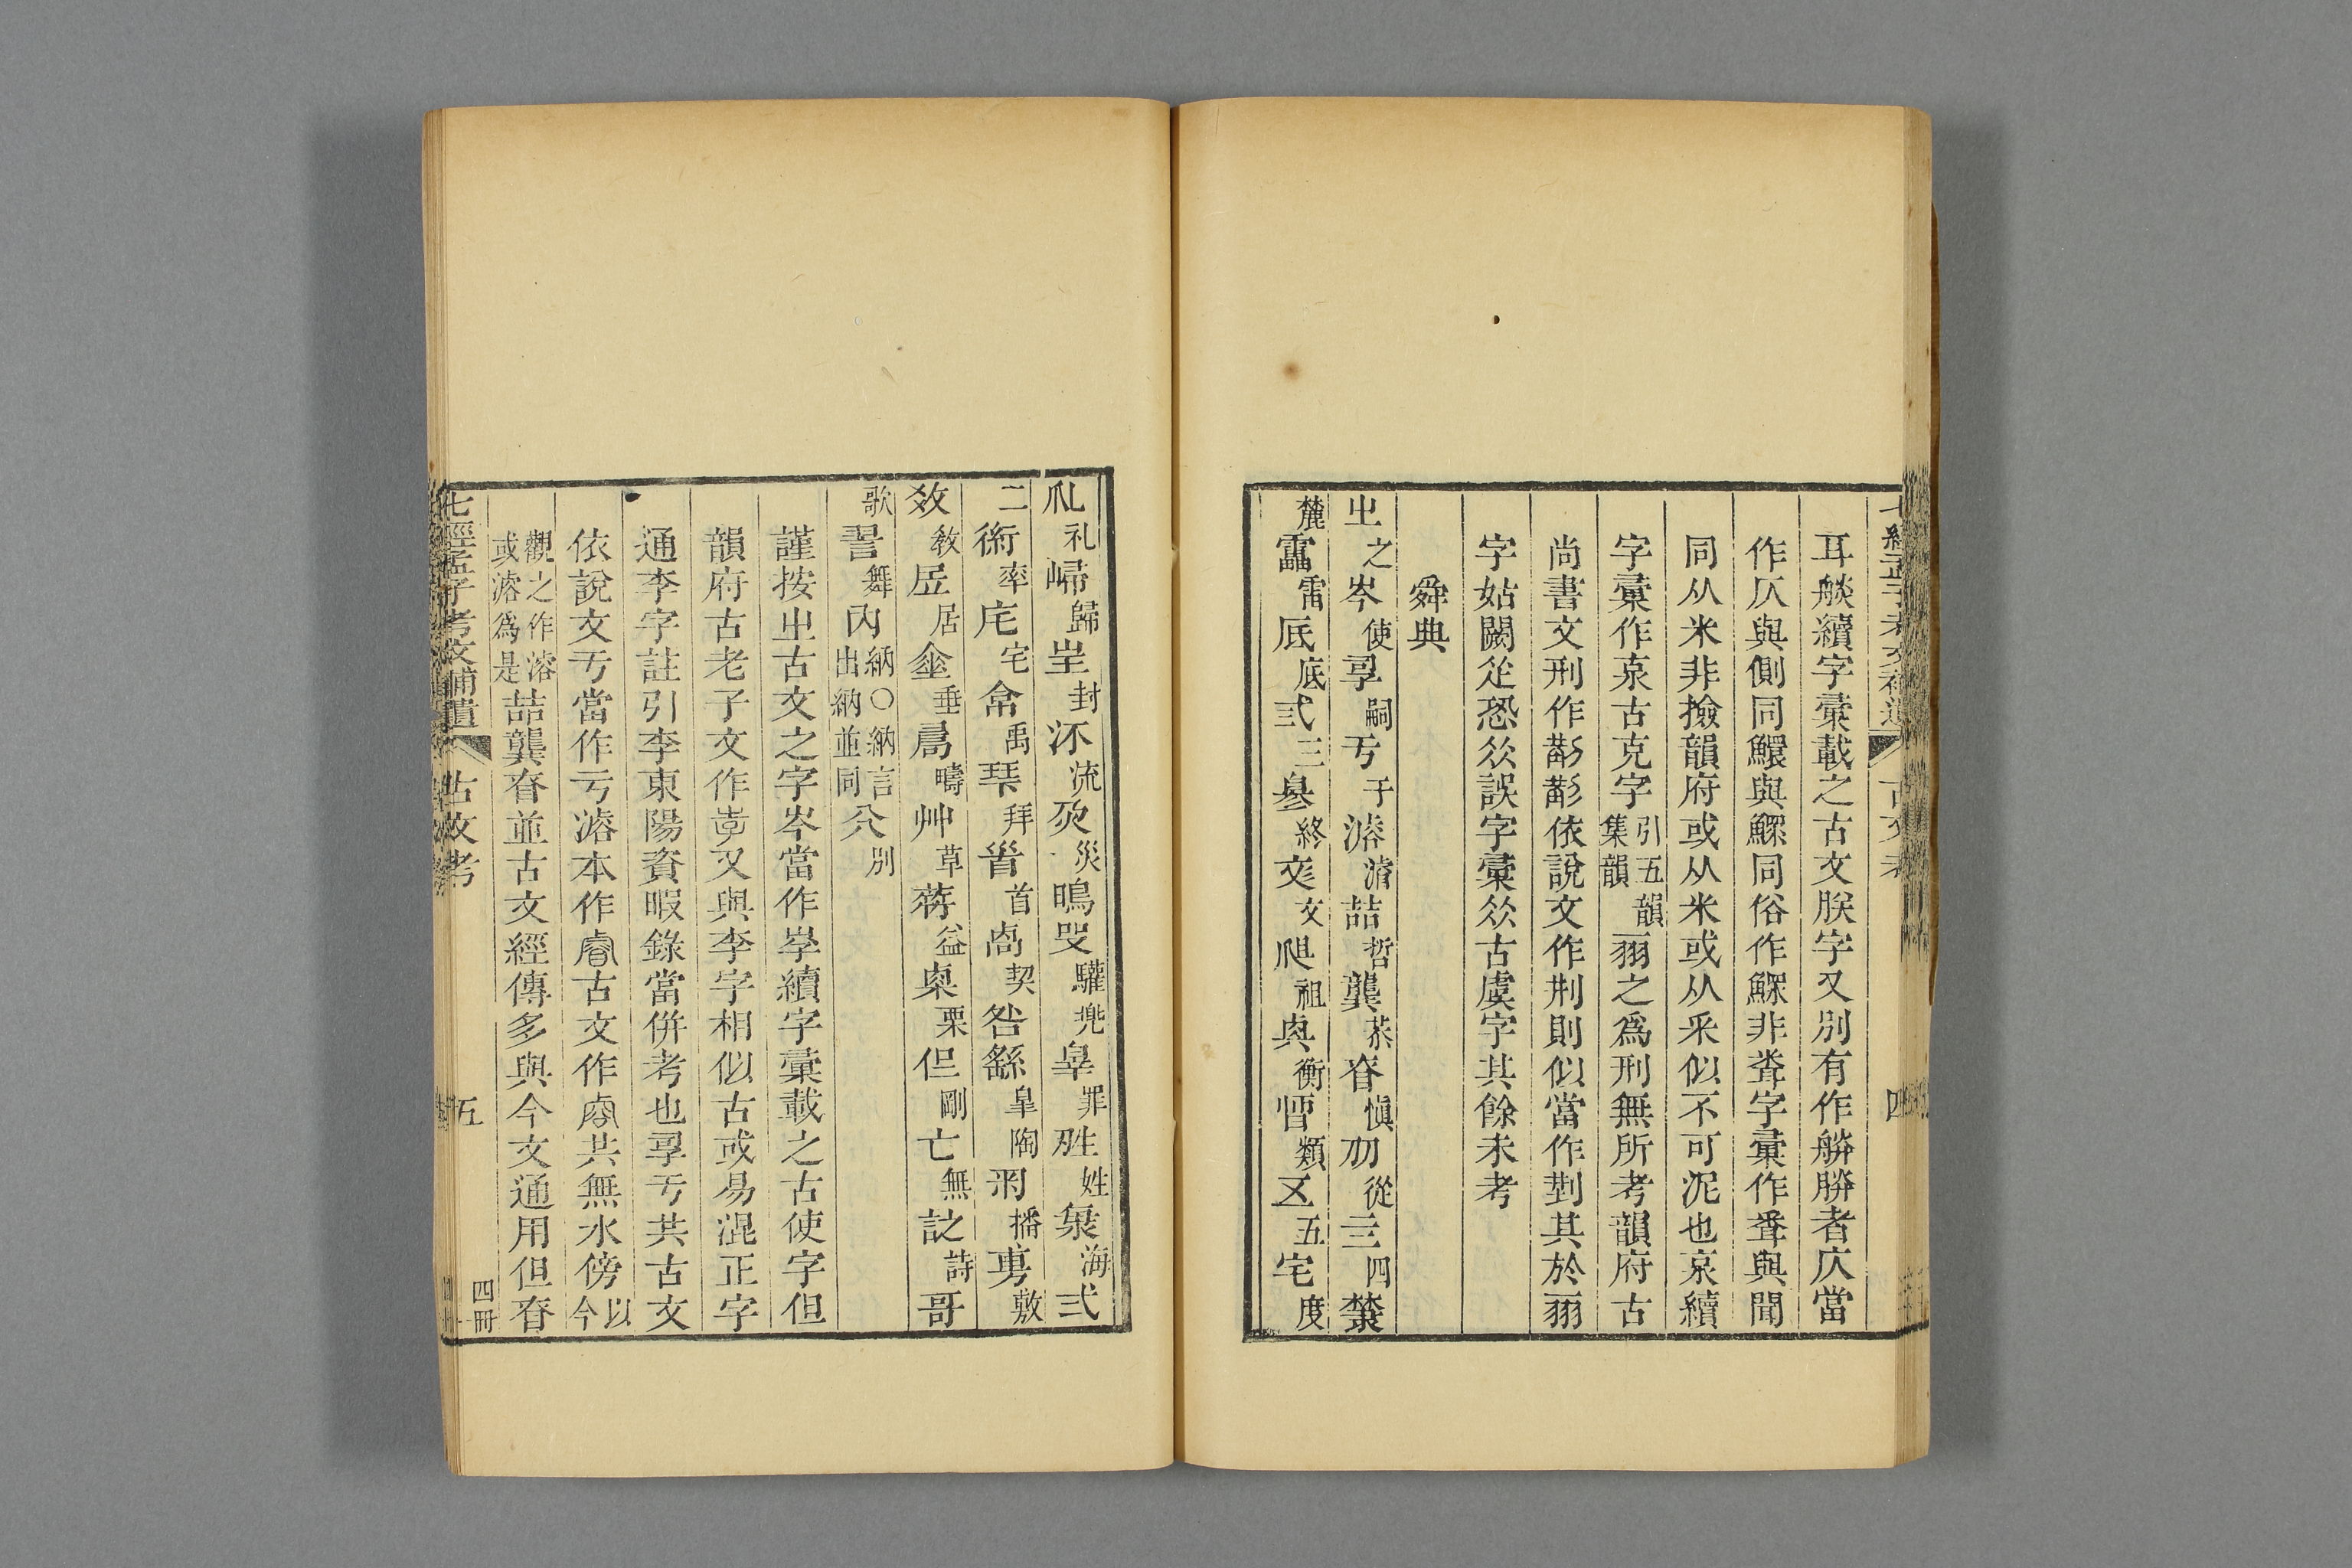 七經孟子考文補遺 古文考 四
耳㷋續字彙載之古文朕字又別有作䑣勝者仄當
作仄與側同鱞與鰥同俗作鰥非聋字彙作聋與聞
同从米非撿韻府或从米或从釆似不可泥也㤅續
字彙作㤅古克字引五韻集韻㓝之爲刑無所考韻府古
尚書文刑作㓝㓝依說文作荆則似當作㓝其於㓝
字姑闕疋恐㒸誤字彙㒸古虞字其餘未考
舜典
㞢之岑使孠嗣亏于濬濬喆哲龔恭昚愼刕從亖四𣡌
麓靁雷厎底弎三㚇終𡥉文𥘵祖奥衡㥨類㐅五宅度
礼礼𡹔歸㞷封㳅流灾災鴅吺驩兜辠罪𤯣姓㴠海弍
二衒率㡯宅㑹禹𢫶拜𩠐首卨契咎繇皐陶𢿥播旉敷
敎敎𡨢居𡍮垂𠷎疇艸草𦳝益㮚栗但剛亡無訨詩哥
歌𦏶舞内納〇納言出納並同㕣別
謹按㞢古文之字岑當作峑續字彙載之古使字但
韻府古老子文作𡥈又與李字相似古或易混正字
通李字註引李東陽資暇錄當併考也孠亏共古文
依說文亏當作亏濬本作睿古文作㕡共無水傍以今
觀之作濬或濬爲是喆龔昚並古文經傳多與今文通用但昚
七經孟子考文補遺 古文考 五 四冊